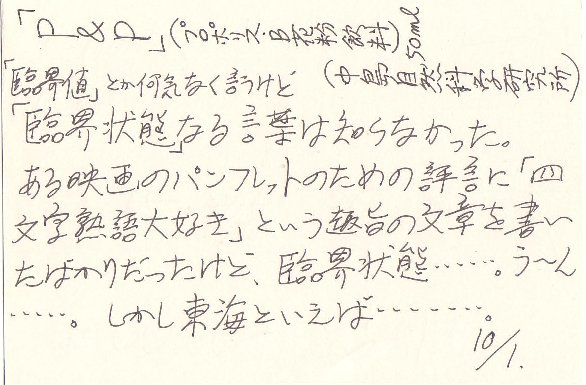 「P&P」(プロポリス・B花粉飲料)50ml
(中島自然科学研究所)
「臨界値」とか何気なく言うけど
「臨界状態」なる言葉は知らなかった。
ある映画のパンフレットのための評言に「四
文字熟語大好き」という趣旨の文章を書い
たばかりだったけど、臨界状態……。う〜ん
……。しかし東海といえば………。
10/1.